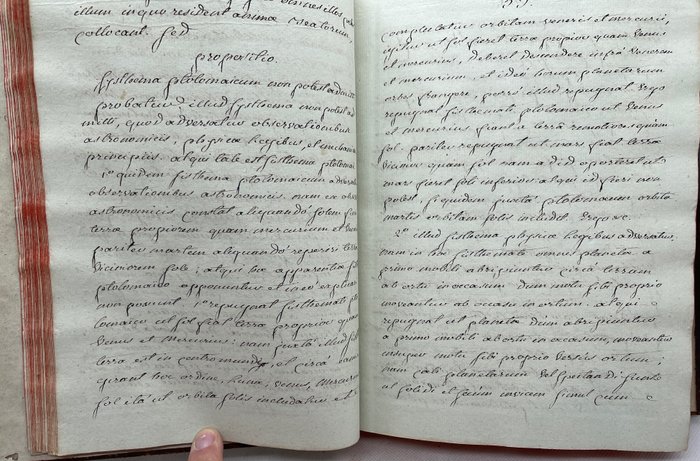 illum in quo resident animæ Beatorum
collocant. sed
propositio.
systhema ptolomaicum non potest admitti
probatur illud systhema non potest ad
mitti, quod adversatur observationibus
astronomicis, physicæ legibus, et mechanicæ
principiis. atqui tale est systhema ptolomai
1º quidem systhema ptolomaicum adversatur
observationibus astronomicis. nam ex ob
astronomicis constat aliquando solem fi
terræ propiorem quam mercurium et ven
pariter martem aliquando reperiri terræ
viciniorem sole; atqui hæc apparentia sy
ptolomaico opponuntur et in eo explicari
non possunt. 1º repugnat systhemati pto
lomaico ut sol fiat terræ proprior quam
venus et Mercurius: nam juxta illud syst
terra est in centro mundi, et circa eam
gyrant hoc ordine, luna, venus, Mercurius
sol ita ut orbita solis includatur et
complectatur orbitam veneris et mercurii,
igitur ut sol fieret terræ propior quam venus
et mercurius, deberet descendere infra venerem
et mercurium, et ideo horum planetarum
orbes frangere, porro illud repugnat. Ergo
repugnat systhemati ptolomaico ut venus
et mercurius fiant a terra remotiores quam
sol. pariter repugnat ut mars fiat terræ
vicinior quam sol nam ad id oporteret ut
mars fieret soli inferior. atqui id fieri non
potest, siquidem juxta ptolomæum orbita
martis orbitam solis includit. Ergo &c.
2º illud systhema physicæ legibus adversatur
nam in hoc systhemate omnes planetæ a
primo mobili abripiuntur circa terram
ab ortu in occasum dum motu sibi proprio
moventur ab occasu in ortum. atqui
repugnat ut planetæ dum abripiuntur
a primo mobili ab ortu in occasum, moveantur
insuper motu sibi proprio versus ortum;
nam cæli planetarum vel spectandi sunt
ut solidi et secum invicem simul cum